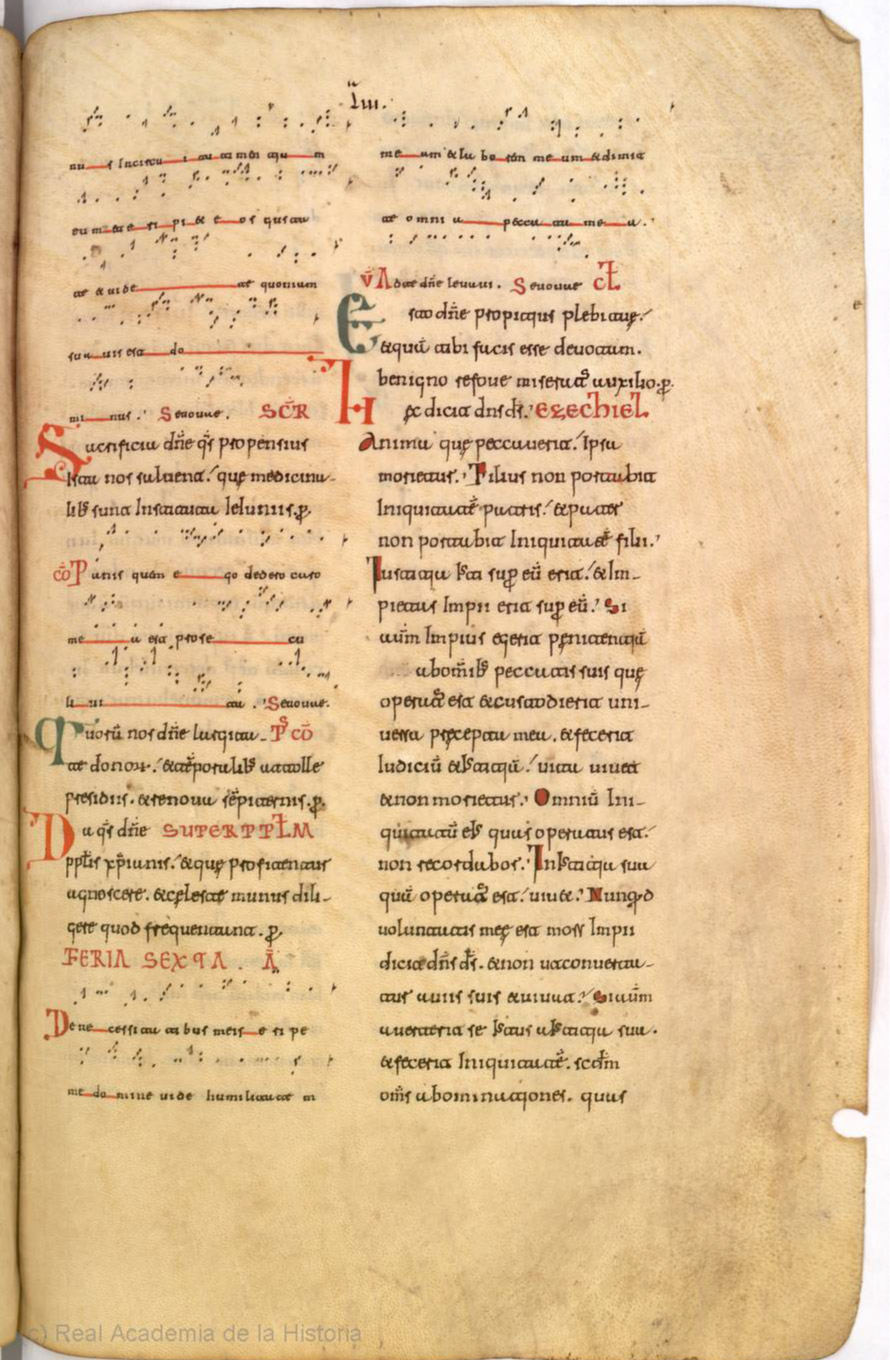 Liii.
nus Incircu i tu ti men tiu m
eum et e ri pi et e os gusta
te et uide te quoniam
sua uis est do
mi nus. Seuouae. SCR
Sacrificiu dñe qs propensius
Istau nos saluent. quę medicina
lib; sunt Instituta Ieiuniis. p
CO Panis quem e go dedero caro
me a est pro se cu
li ui ta. Seuouae.
Quorũ nos dñe largitu PS CO
te donor. & tẽporalib; attolle
presidiis. & renoua sẽpiternis. p
Da qs dñe SUPER PPLM
pplis xp̃ianis. & quę profitentur
agnoscere. & cęleste munus dili-
gere quod frequentant. p
FERIA SEXTA. A
De ne cessita ti bus meis e ri pe
me do mine uide humilitate m
me am & la bo rem me um & dimit
te omni a pecca ta me a.
V Ad te dñe leuaui. Seuouae CL
Esto dñe propitius plebi tuę.
& quã tibi facis esse deuotam.
benigno refoue miseratus auxilio. p
Hęc dicit dñs ds. EZECHIEL
Anima quę peccauerit. Ipsa
morietur. Filius non portabit
Iniquitatẽ patris. & pater
non portabit Iniquitatẽ filii.
Iustitia Iusti sup eũ erit. & Im-
pietas Impii erit sup eũ. Si
autm Impius egerit pęnitentiã
ab omib; peccatis suis quę
operatus est & custodierit uni-
uersa pręcepta mea. & fecerit
Iudiciũ & Iustitiã. uita uiuet
& non morietur. Omniũ Ini-
quitatũ eius quas operatus est.
non recordabor. In Iustitia sua
quã operatus est. uiuet. Nunqd
uoluntatis meę est mors Impii
dicit dñs ds. & non ut conuerta-
tur a uiis suis & uiuat. Si autm
auerterit se Iustus a Iustitia sua.
& fecerit Iniquitatẽ. scdm
oms abominationes. quas
(c) Real Academia de la Historia